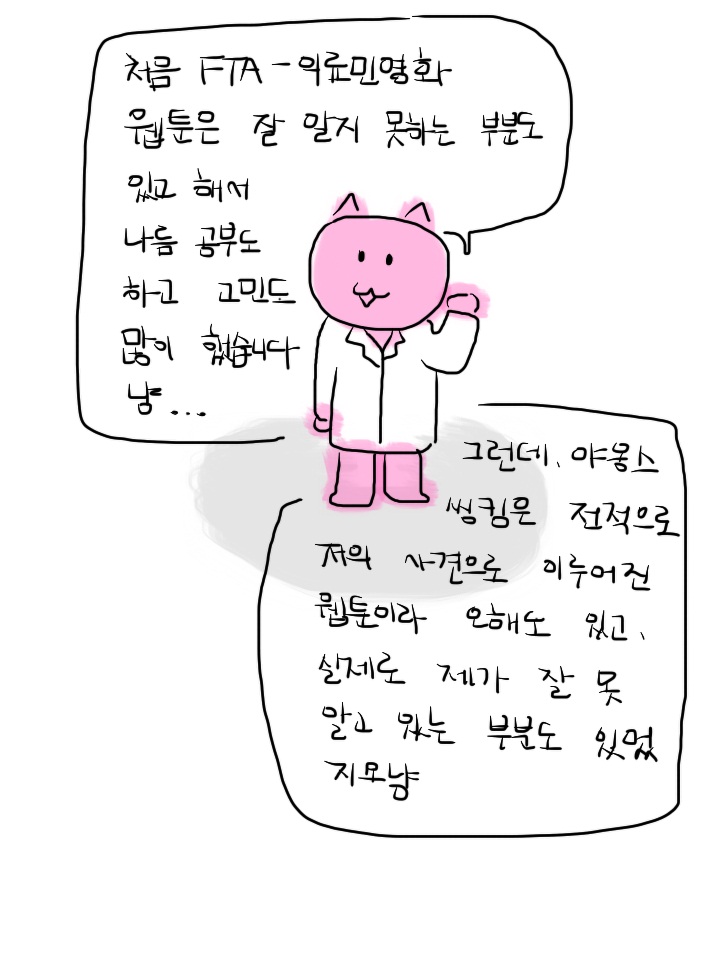 처음 FTA - 의료민영화
웹툰은 잘 알지 못하는 부분도
있고 해서
나름 공부도
하고 고민도
많이 했습니다
냥...
그런데, 야옹스
씽킹은 전적으로
저의 사견으로 이루어진
웹툰이라 오해도 있고,
실제로 제가 잘 못
알고 있는 부분도 있었
지모냥